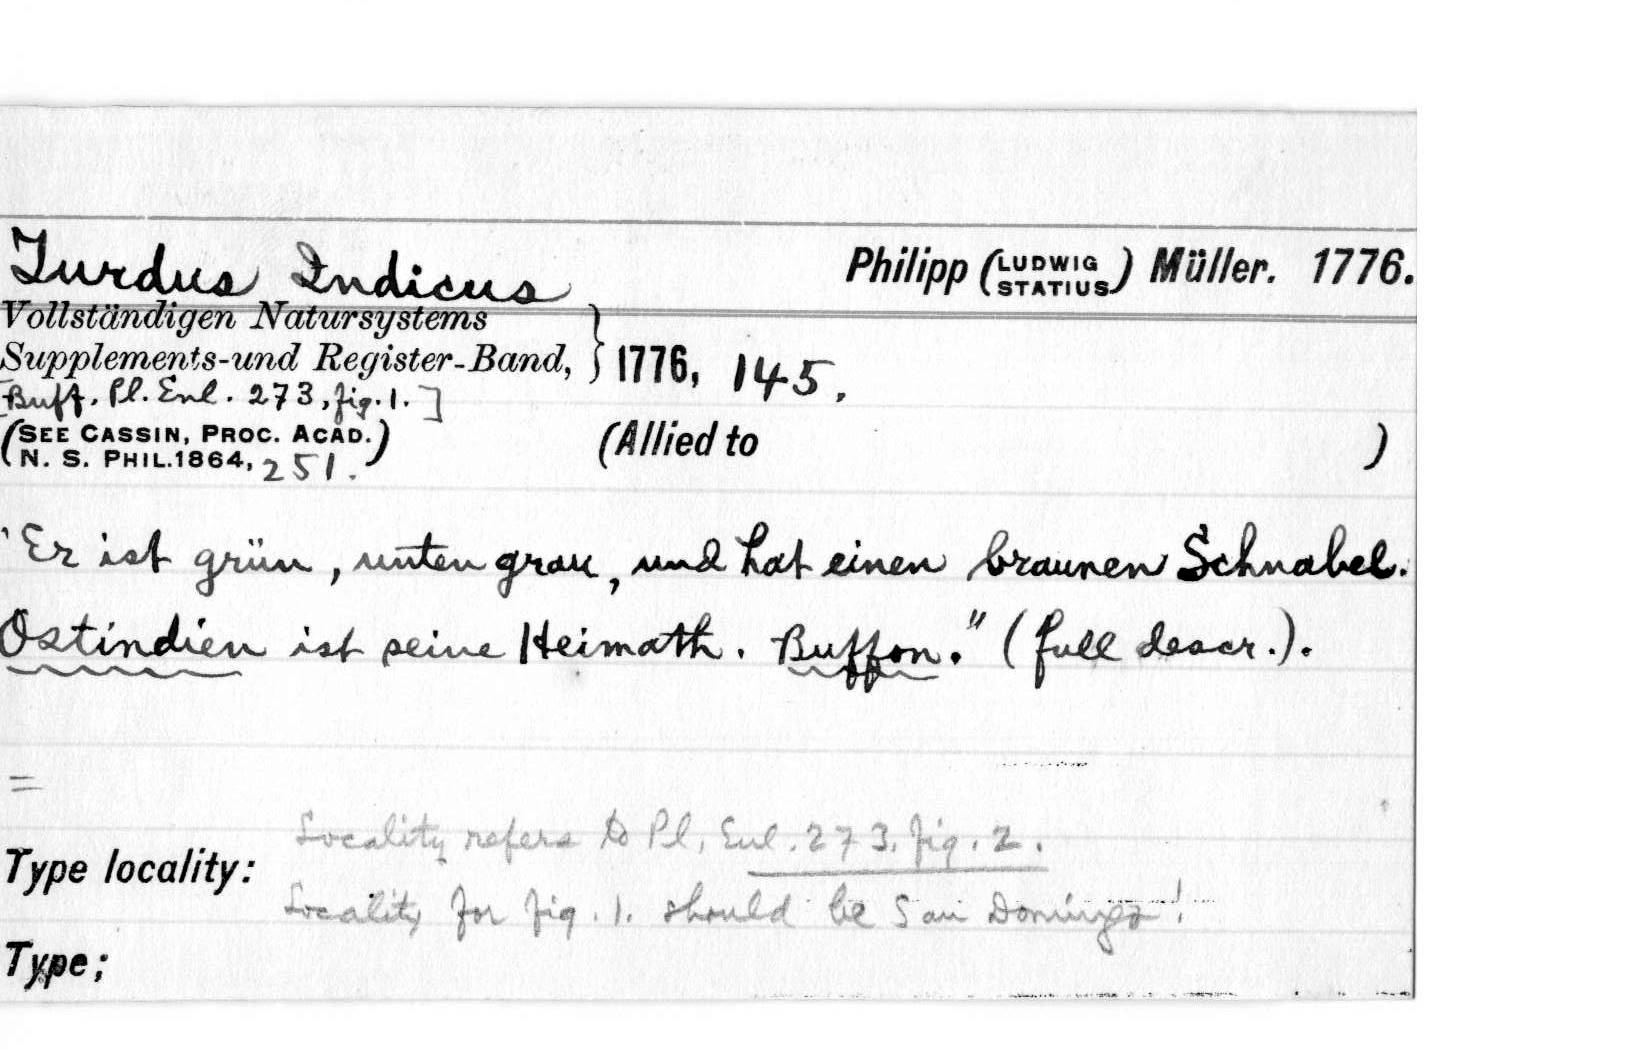 Turdus Indicus Philipp (LUDWIG STATIUS) Müller. 1776.
Vollständigen Natursystems
Supplements-und Register-Band, } 1776, 145.
[Buff. Pl. Enl. 273, fig. 1.]
(SEE CASSIN, PROC. ACAD.
N. S. PHIL. 1864, 251.) (Allied to )
"Er ist grün, unten grau, und hat einen braunen Schnabel.
Ostindien ist seine Heimath. Buffon." (full descr.).
=
Locality refers to Pl. Enl. 273, fig. 2.
Type locality:
Locality for fig. 1. should be San Domingo!
Type;